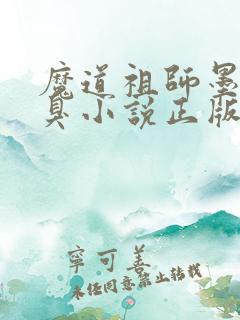 魔道祖師墨
臭小說正版
寧可善
未任同意禁止轉載